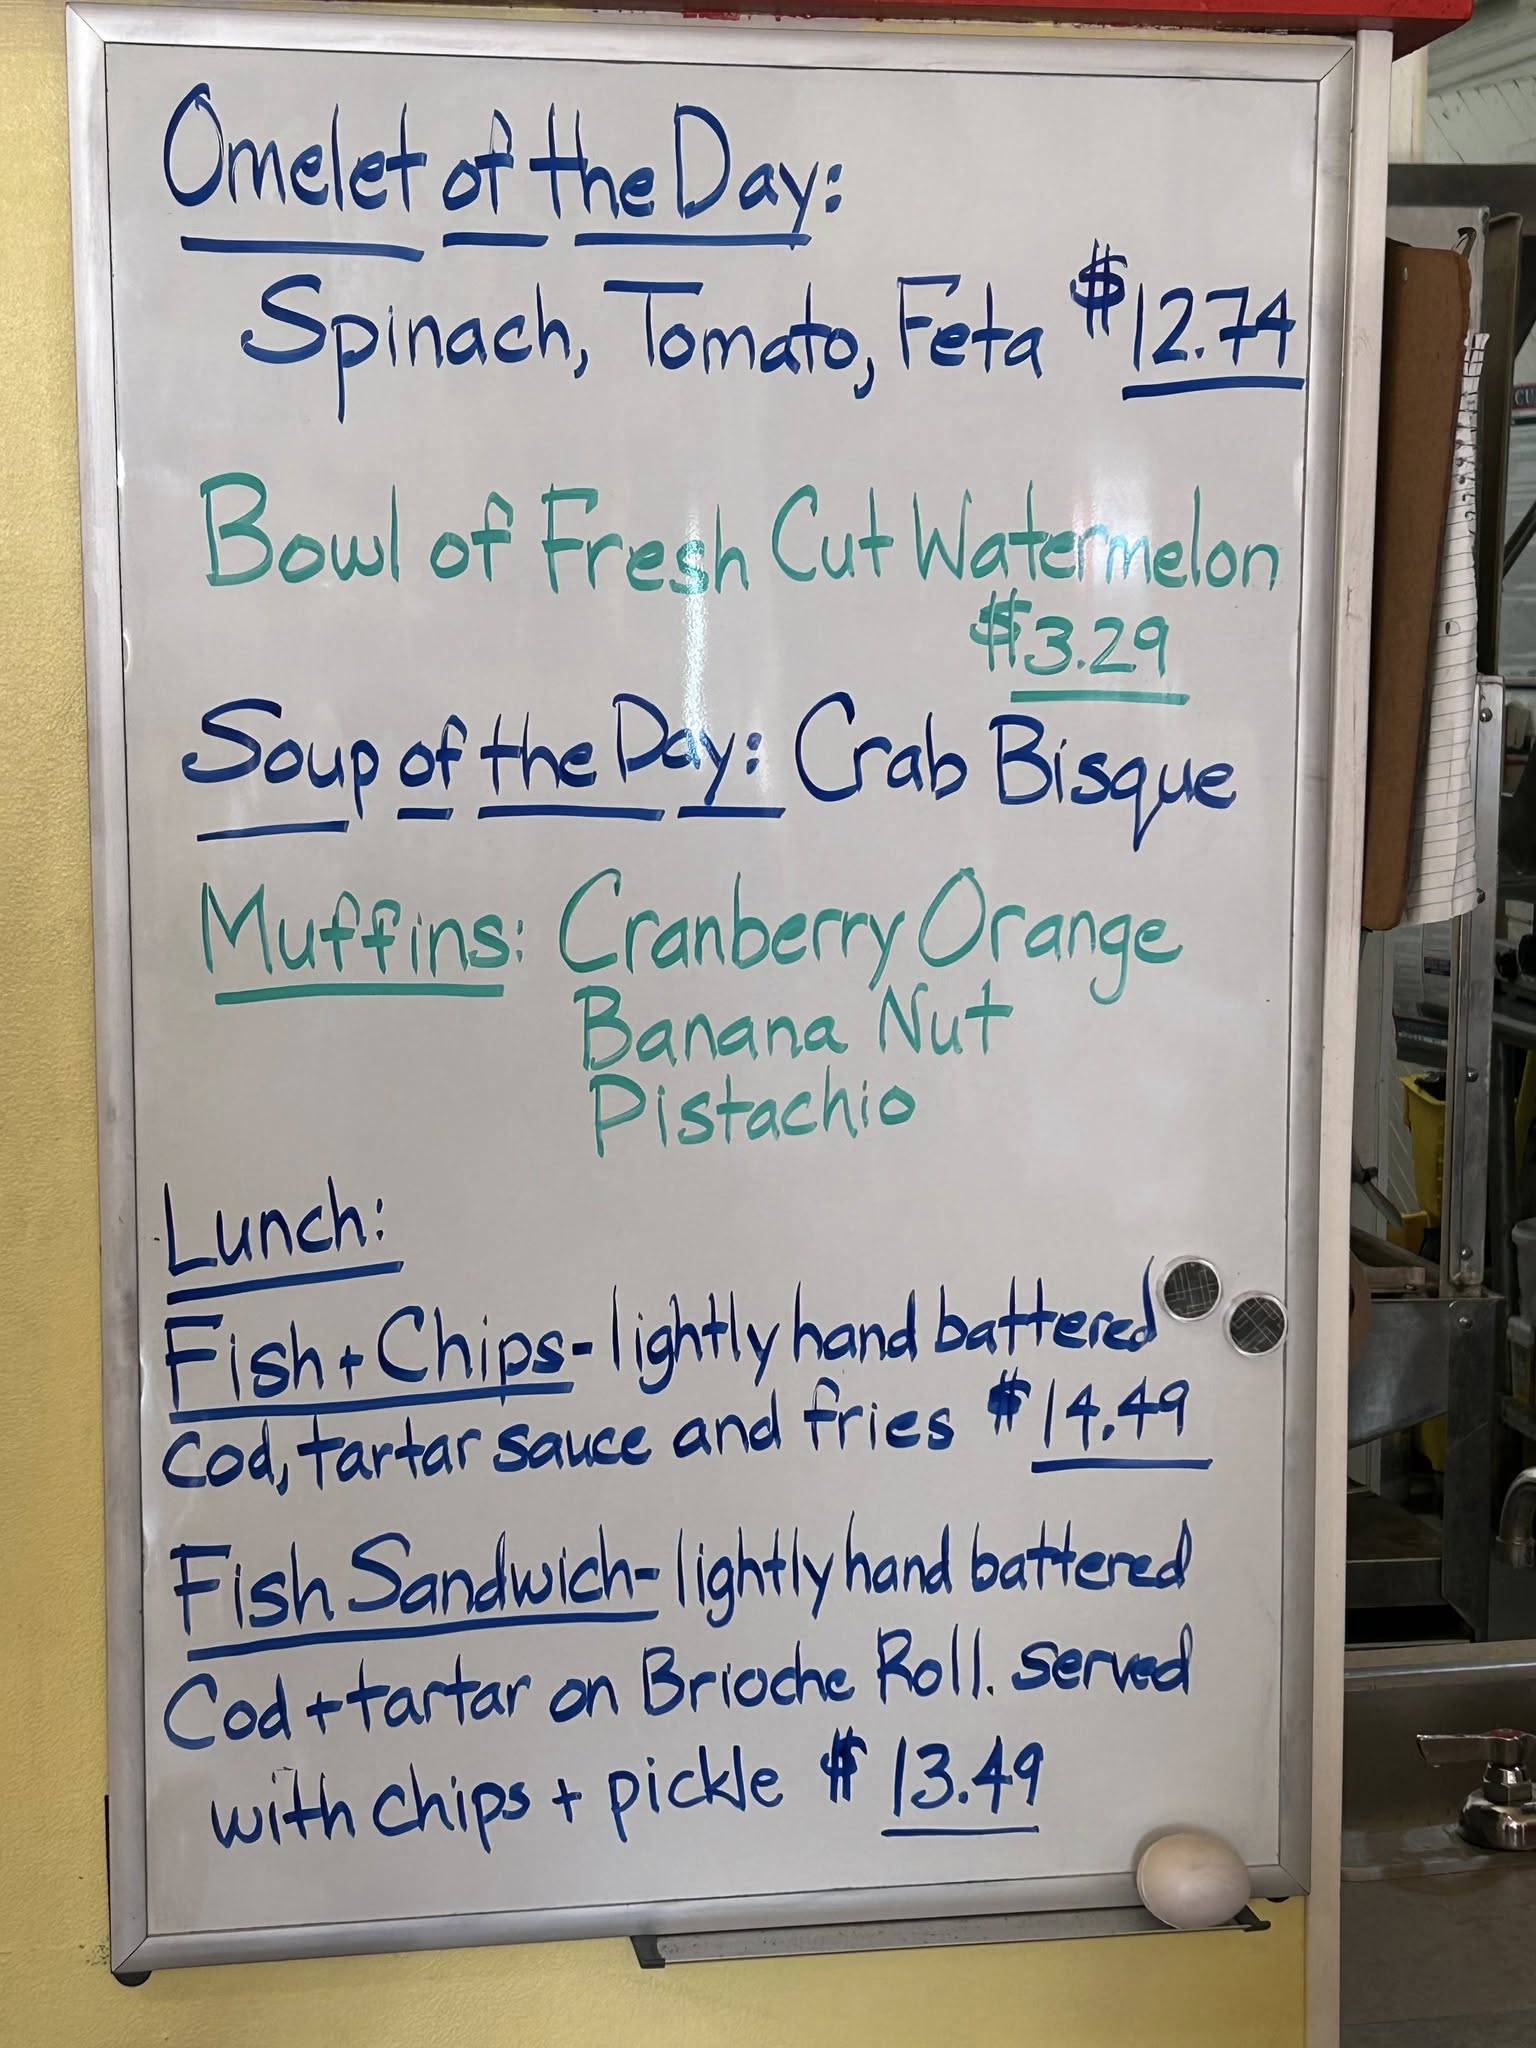 Omelet of the Day:
Spinach, Tomato, Feta $12.74
Bowl of Fresh Cut Watermelon
$3.29
Soup of the Day: Crab Bisque
Muffins: Cranberry Orange
Banana Nut
Pistachio
Lunch:
Fish + Chips - lightly hand battered
cod, tartar sauce and fries $14.49
Fish Sandwich - lightly hand battered
Cod + tartar on Brioche Roll. served
with chips + pickle $13.49